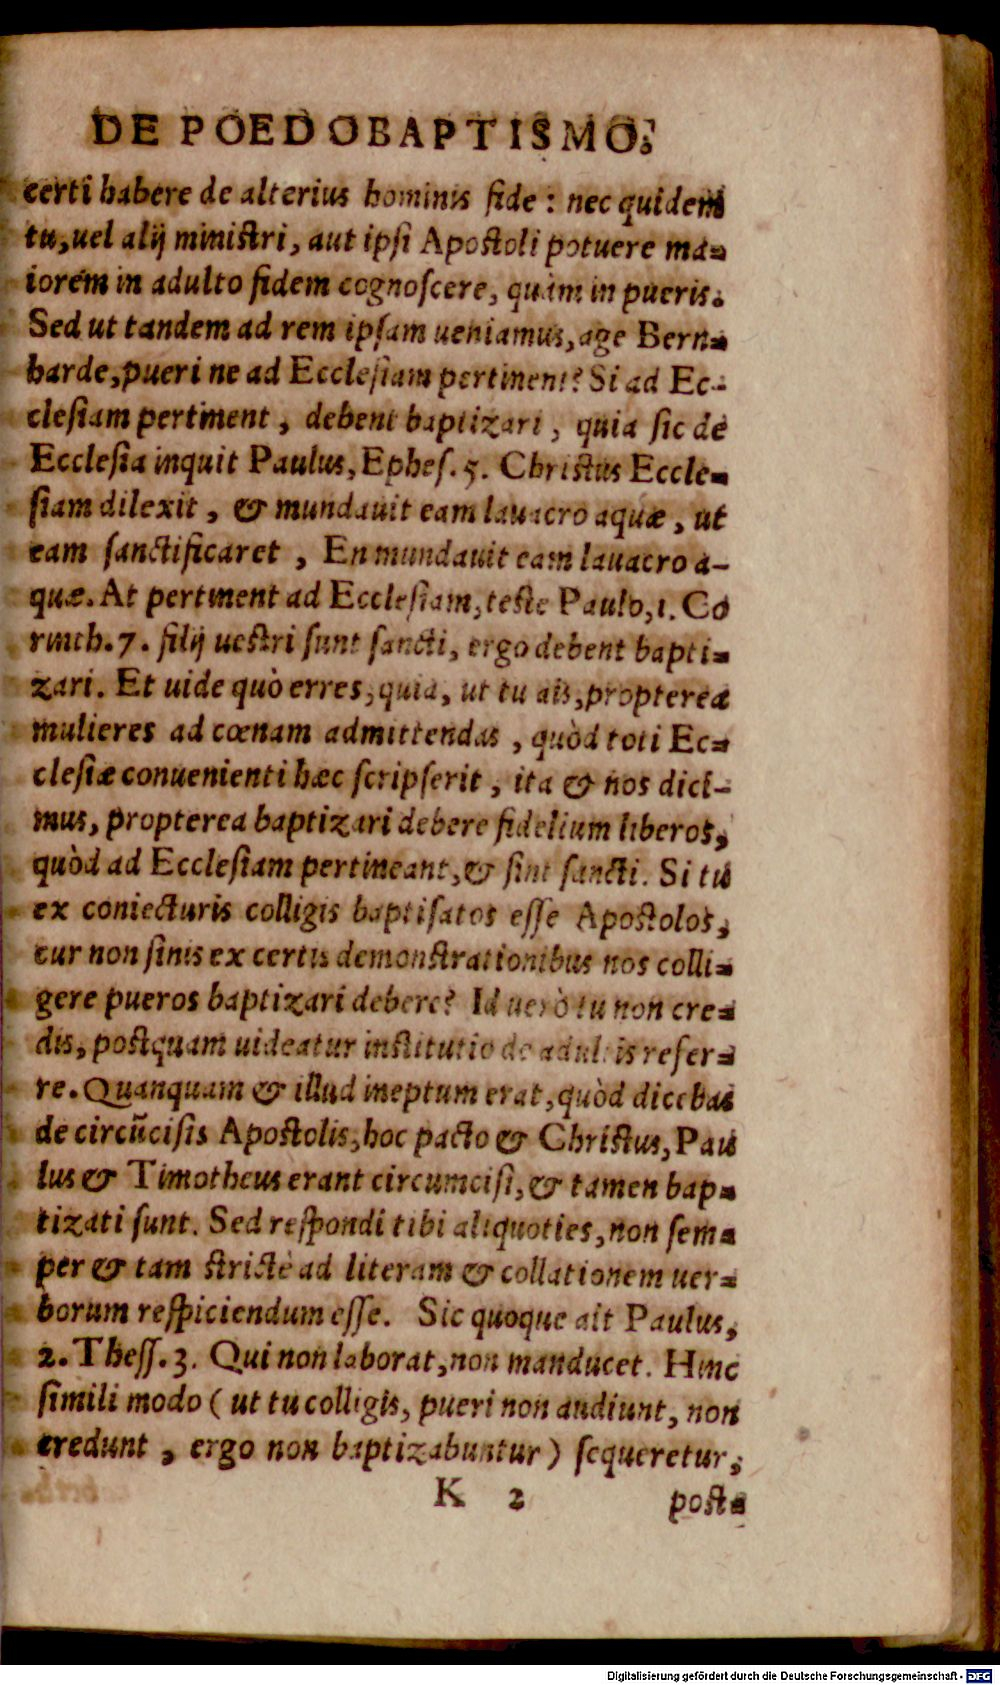 DE POEDOBAPTISMO.
certi habere de alterius hominis fide: nec quidem
tu, uel alij ministri, aut ipsi Apostoli potuere ma-
iorem in adulto fidem cognoscere, quàm in pueris.
Sed ut tandem ad rem ipsam ueniamus, age Bern-
harde, pueri ne ad Ecclesiam pertinent? Si ad Ec-
clesiam pertinent, debent baptizari, quia sic de
Ecclesia inquit Paulus, Ephes. 5. Christus Eccle-
siam dilexit, & mundauit eam lauacro aquæ, ut
eam sanctificaret, En mundauit eam lauacro a-
quæ. At pertinent ad Ecclesiam, teste Paulo, 1. Co
rinth. 7. filij uestri sunt sancti, ergo debent bapti-
zari. Et uide quò erres, quia, ut tu ais, propterea
mulieres ad cœnam admittendas, quòd toti Ec-
clesiæ conuenienti hæc scripserit, ita & nos dici-
mus, propterea baptizari debere fidelium liberos,
quòd ad Ecclesiam pertineant, & sint sancti. Si tu
ex coniecturis colligis baptisatos esse Apostolos,
cur non sinis ex certis demonstrationibus nos colli-
gere pueros baptizari debere? Id uerò tu non cre-
dis, postquam uideatur institutio de adultis refer-
re. Quanquam & illud ineptum erat, quòd dicebas
de circũcisis Apostolis, hoc pacto & Christus, Pau
lus & Timotheus erant circumcisi, & tamen bap-
tizati sunt. Sed respondi tibi aliquoties, non sem-
per & tam strictè ad literam & collationem uer-
borum respiciendum esse. Sic quoque ait Paulus,
2. Thess. 3. Qui non laborat, non manducet. Hinc
simili modo (ut tu colligis, pueri non audiunt, non
credunt, ergo non baptizabuntur) sequeretur,
K 2 post-
Digitalisierung gefördert durch die Deutsche Forschungsgemeinschaft - DFG